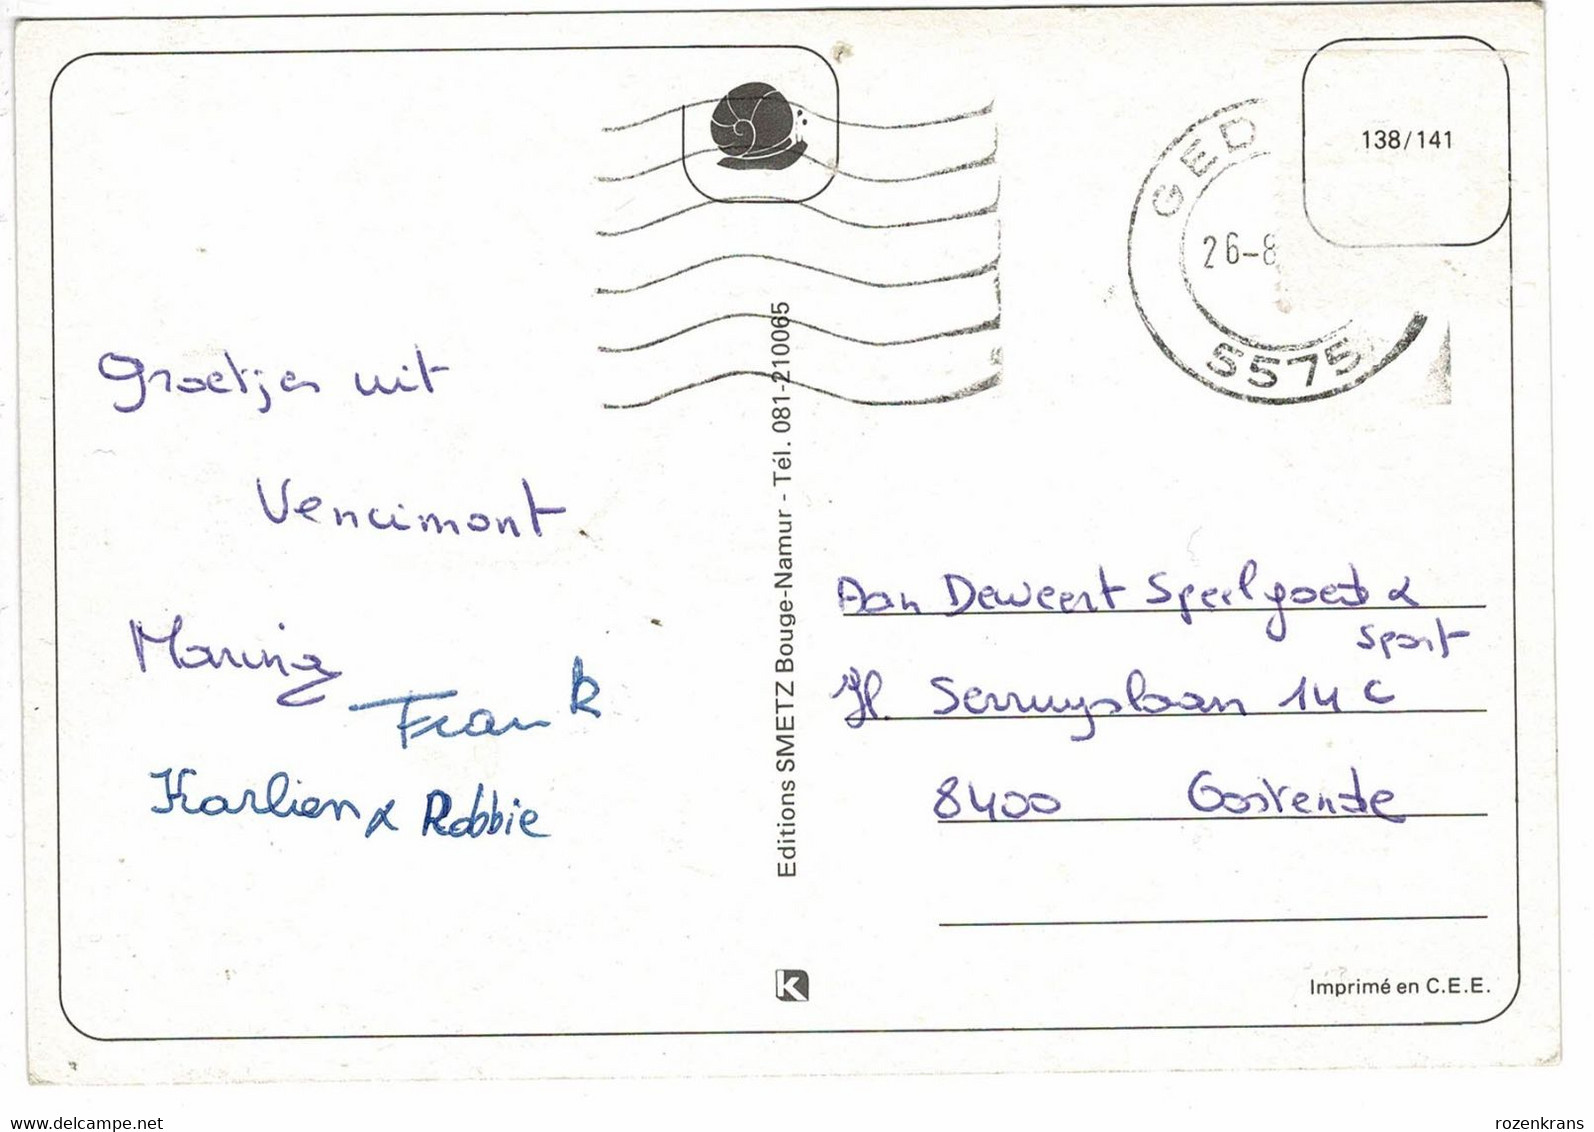 138/141
GED
26-8
5575
Groetjes uit
Vencimont
Marina
Frank
Karlien & Robbie
Editions SMETZ Bouge-Namur - Tél. 081-210065
Aan Deweert Speelgoed &
Sport
H. Serruyslaan 14 C
8400 Oostende
K
Imprimé en C.E.E.
www.delcampe.net
rozenkrans